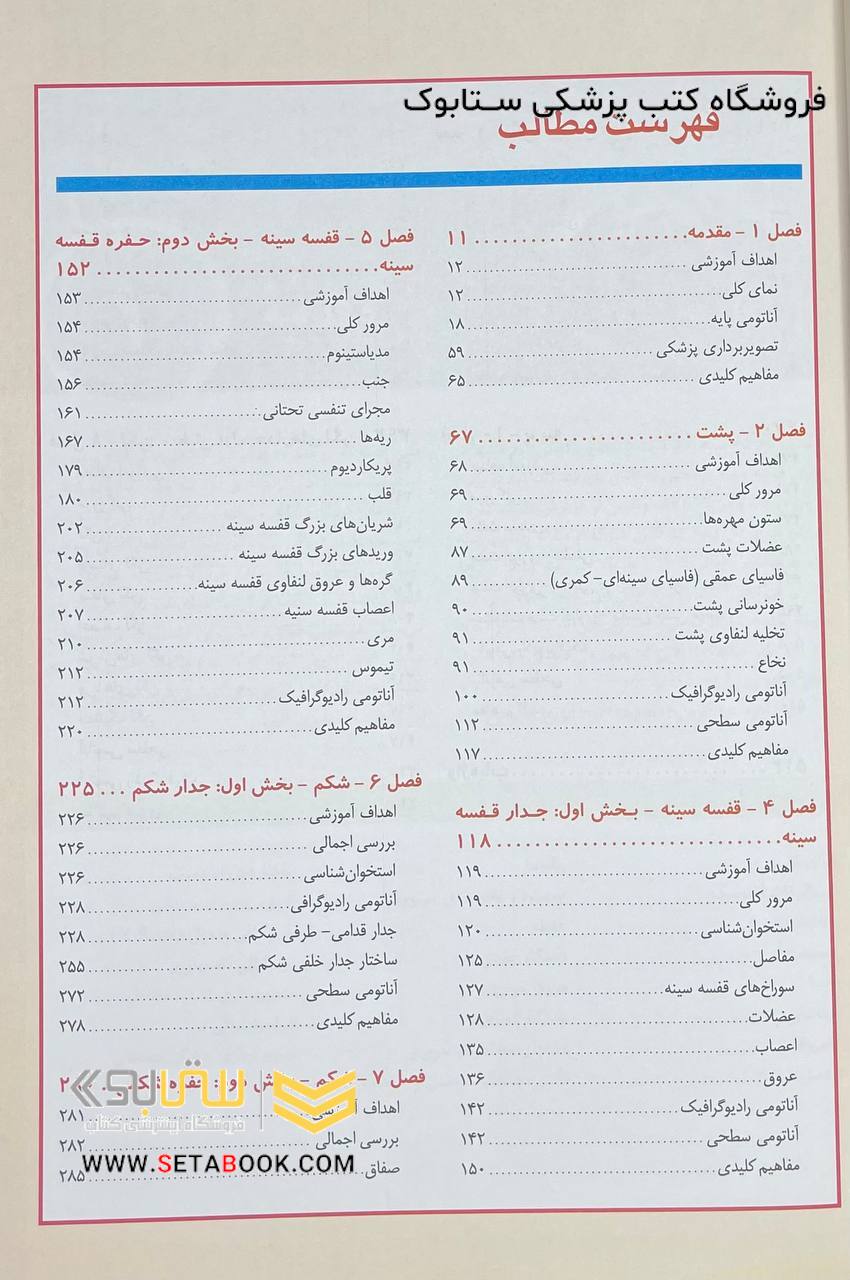 فروشگاه کتب پزشکی ستابوک
فهرست مطالب
فصل ۱ - مقدمه ۱۱
اهداف آموزشی ۱۲
نمای کلی ۱۲
آناتومی پایه ۱۸
تصویربرداری پزشکی ۵۹
مفاهیم کلیدی ۶۵
فصل ۲ - پشت ۶۷
اهداف آموزشی ۶۸
مرور کلی ۶۹
ستون مهره‌ها ۶۹
عضلات پشت ۸۷
فاسیای عمقی (فاسیای سینه‌ای- کمری) ۸۹
خونرسانی پشت ۹۰
تخلیه لنفاوی پشت ۹۱
نخاع ۹۱
آناتومی رادیوگرافیک ۱۰۰
آناتومی سطحی ۱۱۲
مفاهیم کلیدی ۱۱۷
فصل ۴ - قفسه سینه - بخش اول: جدار قفسه
سینه ۱۱۸
اهداف آموزشی ۱۱۹
مرور کلی ۱۱۹
استخوان‌شناسی ۱۲۰
مفاصل ۱۲۵
سوراخ‌های قفسه سینه ۱۲۷
عضلات ۱۲۸
اعصاب ۱۳۵
عروق ۱۳۶
آناتومی رادیوگرافیک ۱۴۲
آناتومی سطحی ۱۴۲
مفاهیم کلیدی ۱۵۰
فصل ۵ - قفسه سینه - بخش دوم: حفره قفسه
سینه ۱۵۲
اهداف آموزشی ۱۵۳
مرور کلی ۱۵۴
مدیاستینوم ۱۵۴
جنب ۱۵۶
مجرای تنفسی تحتانی ۱۶۱
ریه‌ها ۱۶۷
پریکاردیوم ۱۷۹
قلب ۱۸۰
شریان‌های بزرگ قفسه سینه ۲۰۲
وریدهای بزرگ قفسه سینه ۲۰۵
گره‌ها و عروق لنفاوی قفسه سینه ۲۰۶
اعصاب قفسه سنیه ۲۰۷
مری ۲۱۰
تیموس ۲۱۲
آناتومی رادیوگرافیک ۲۱۲
مفاهیم کلیدی ۲۲۰
فصل ۶ - شکم - بخش اول: جدار شکم ۲۲۵
اهداف آموزشی ۲۲۶
بررسی اجمالی ۲۲۶
استخوان‌شناسی ۲۲۶
آناتومی رادیوگرافی ۲۲۸
جدار قدامی- طرفی شکم ۲۲۸
ساختار جدار خلفی شکم ۲۵۵
آناتومی سطحی ۲۷۲
مفاهیم کلیدی ۲۷۸
فصل ۷ - شکم - بخش دوم: حفره شکم
اهداف آموزشی ۲۸۱
بررسی اجمالی ۲۸۲
صفاق ۲۸۵
ستابوک
فروشگاه اینترنتی کتاب
WWW.SETABOOK.COM